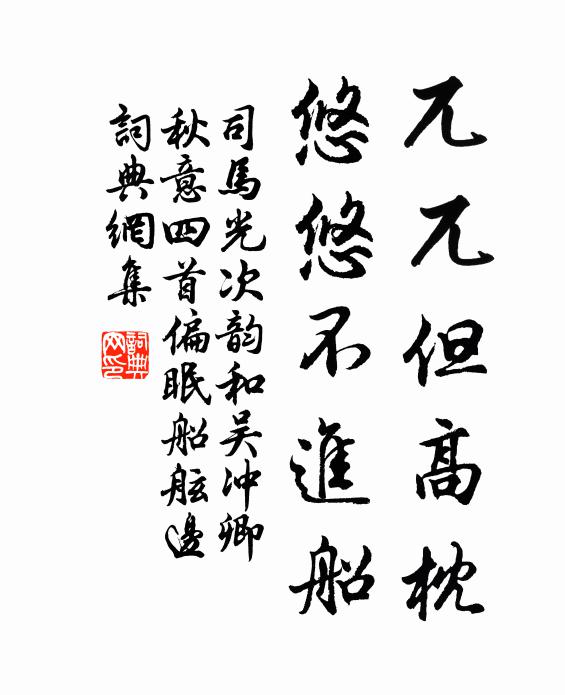 兀兀但高枕
悠悠不進船
司馬光次韵和吴沖卿
秋意四首偏眠船舷邊
詞典網集
詞典网印